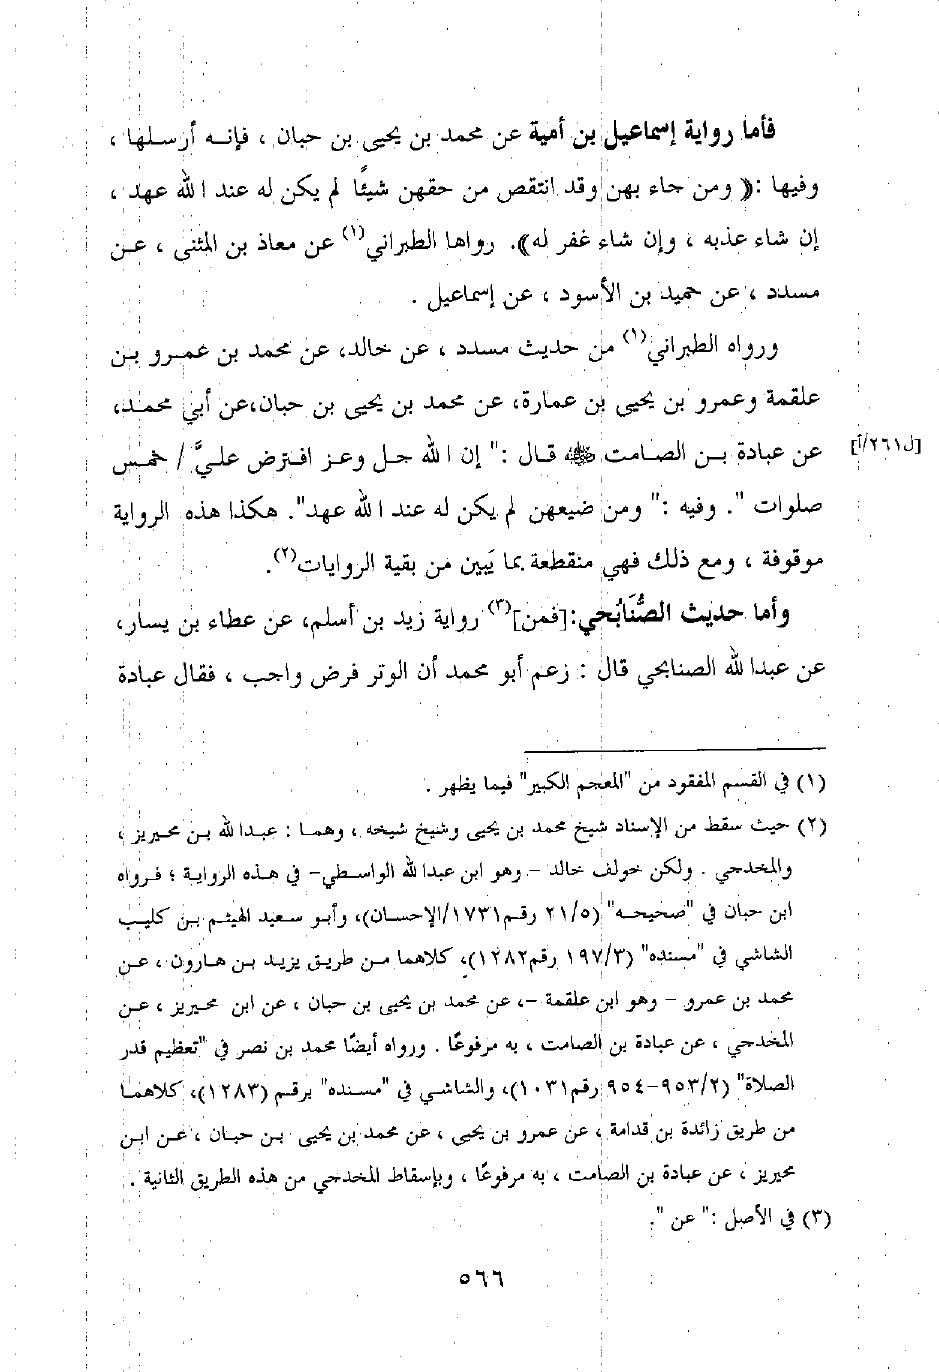 فأما رواية إسماعيل بن أمية عن محمد بن يحيى بن حبان ، فإنـه أرسـلها ،
وفيها :﴿ ومن جاء بهن وقد انتقص من حقهن شيئًا لم يكن له عند الله عهد ،
إن شاء عذبه ، وإن شاء غفر له﴾. رواها الطبراني(١) عن معاذ بن المثنى ، عـن
مسدد ، عن حميد بن الأسود ، عن إسماعيل .
ورواه الطبراني(١) من حديث مسدد ، عن خالد، عن محمد بن عمـرو بـن
علقمة وعمرو بن يحيى بن عمارة، عن محمد بن يحيى بن حبان،عن أبي محمـد،
عن عبادة بـن الصـامت ﷺ قـال :" إن الله جـل وعـز افـترض علـيَّ / خمـس
[ل٢٦١/أ]
صلوات ". وفيه :" ومن ضيعهن لم يكن له عند الله عهد". هكذا هذه الرواية
موقوفة ، ومع ذلك فهي منقطعة بما يَبين من بقية الروايات(٢).
وأما حديث الصُّنَابُحي:[فمن](٣) رواية زيد بن أسلم، عن عطاء بن يسار،
عن عبدا لله الصنابحي قال : زعم أبو محمد أن الوتر فرض واجب ، فقال عبادة
(١) في القسم المفقود من "المعجم الكبير" فيما يظهر .
(٢) حيث سقط من الإسناد شيخ محمد بن يحيى وشيخ شيخه ، وهمـا : عبـدا لله بـن محـيريز ،
والمخدجي . ولكن خولف خالد – وهو ابن عبدا لله الواسطي– في هـذه الروايـة ؛ فـرواه
ابن حبان في "صحيحـه" (٢١/٥ رقم١٧٣١/الإحسان)، وأبـو سعيد الهيثـم بـن كليب
الشاشي في "مسنده" (١٩٧/٣ رقم١٢٨٢)، كلاهما مـن طريـق يزيـد بـن هـارون ، عـن
محمد بن عمرو – وهو ابن علقمة –، عن محمد بن يحيى بن حبان ، عن ابن محيريز ، عـن
المخدجي ، عن عبادة بن الصامت ، به مرفوعًا . ورواه أيضًا محمد بن نصر في "تعظيم قدر
الصلاة" (٩٥٣/٢–٩٥٤ رقم١٠٣١)، والشاشي في "مسنده" برقم (١٢٨٣)، كلاهمـا
من طريق زائدة بن قدامة ، عن عمرو بن يحيى ، عن محمد بن يحيى بـن حبـان ، عـن ابـن
محيريز ، عن عبادة بن الصامت ، به مرفوعًا ، وبإسقاط المخدجي من هذه الطريق الثانية .
(٣) في الأصل :" عن ".
٥٦٦